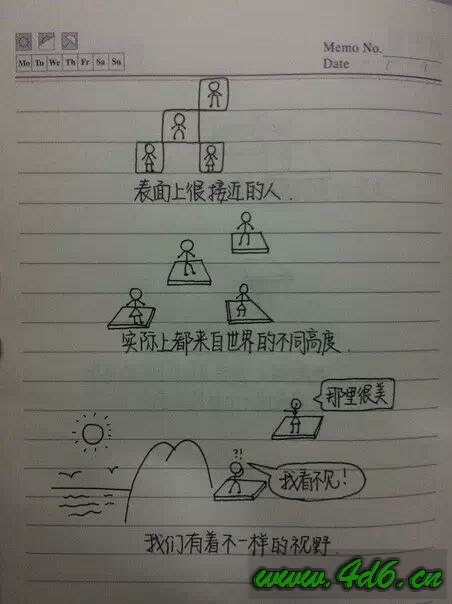 Memo No.
Mo Tu We Th Fr Sa Su
Date
表面上很接近的人.
实际上都来自世界的不同高度.
那里很美
?!
我看不见!
我们有着不一样的视野.
www.4d6.cn